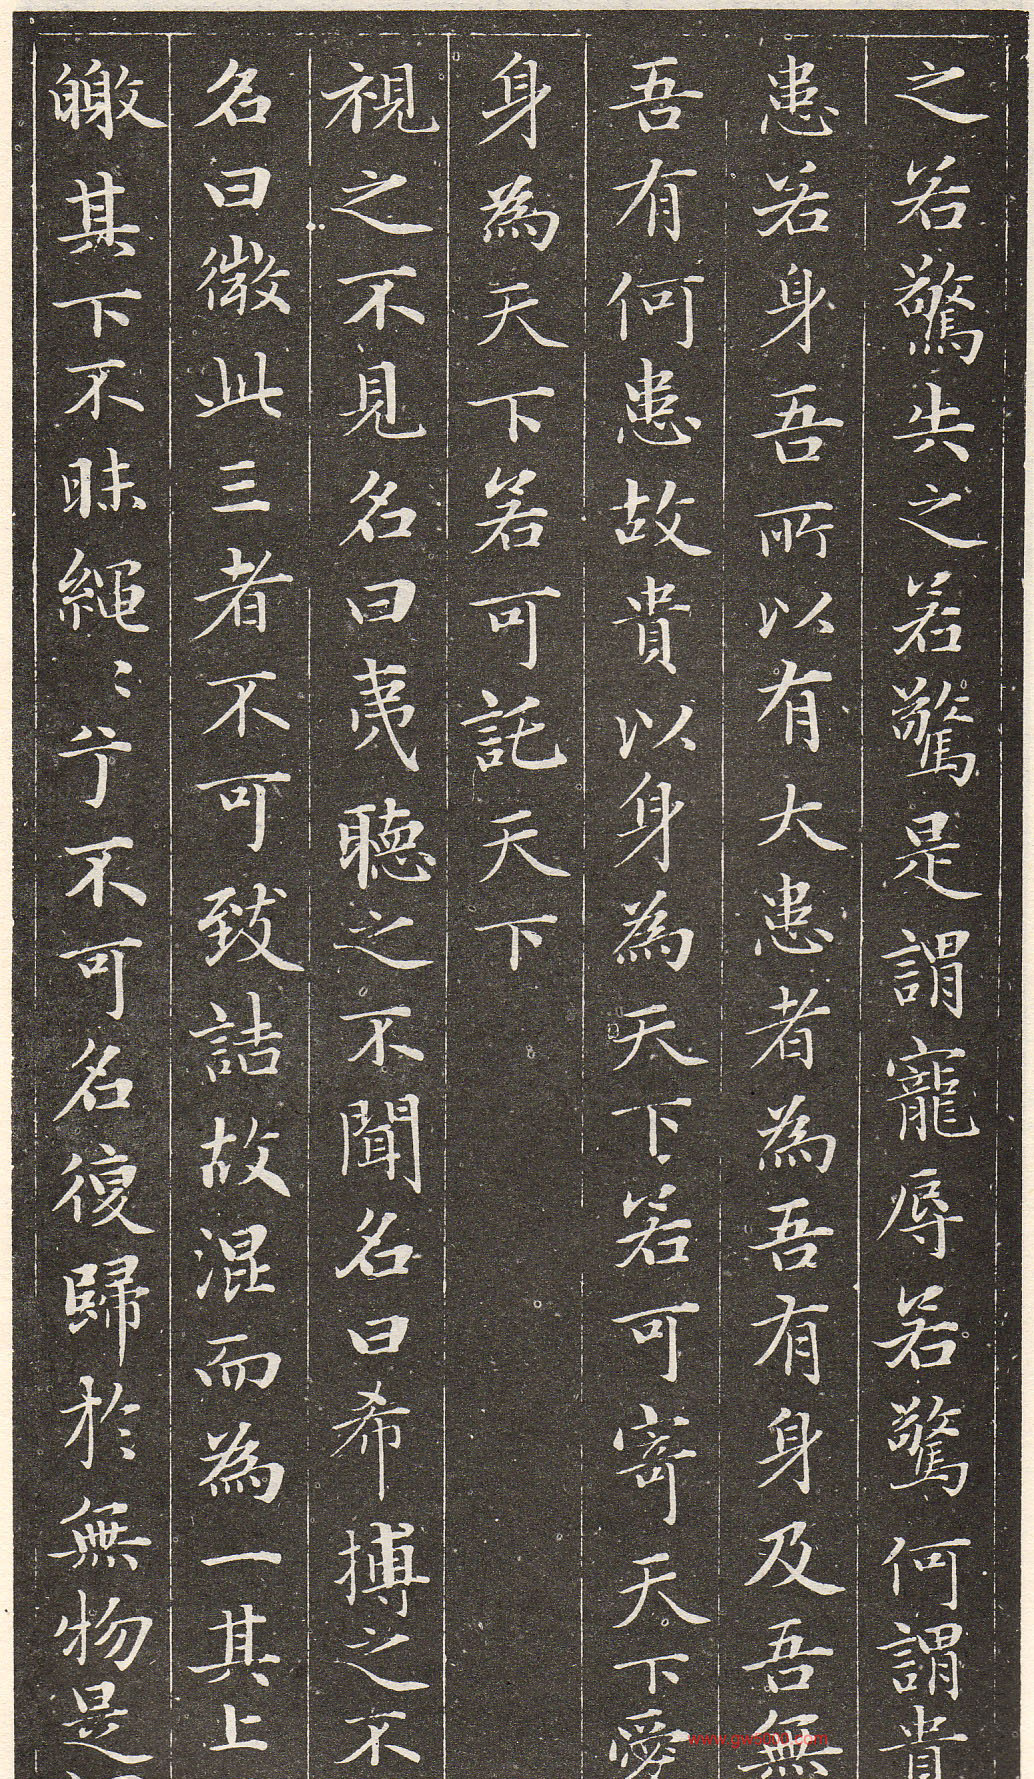 之若驚失之若驚是謂寵辱若驚何謂貴
患若身吾所以有大患者為吾有身及吾無
吾有何患故貴以身為天下若可寄天下愛
身為天下若可託天下
視之不見名曰夷聽之不聞名曰希搏之不
名曰微此三者不可致詰故混而為一其上
皦其下不昧繩〻兮不可名復歸於無物是